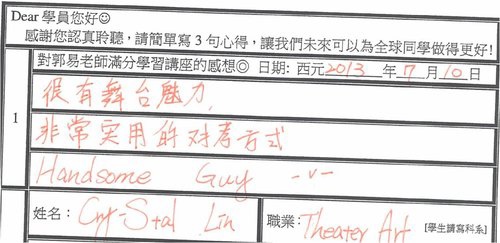 Dear 學員您好☺
感謝您認真聆聽，請簡單寫 3 句心得，讓我們未來可以為全球同學做得更好!
對郭易老師滿分學習講座的感想◎ 日期: 西元2013 年 7 月 10 日
1
很有舞台魅力,
非常实用的对考方式
Handsome Guy -v-
姓名： Cry-Stal Lin 職業： Theater Art [學生請寫科系]